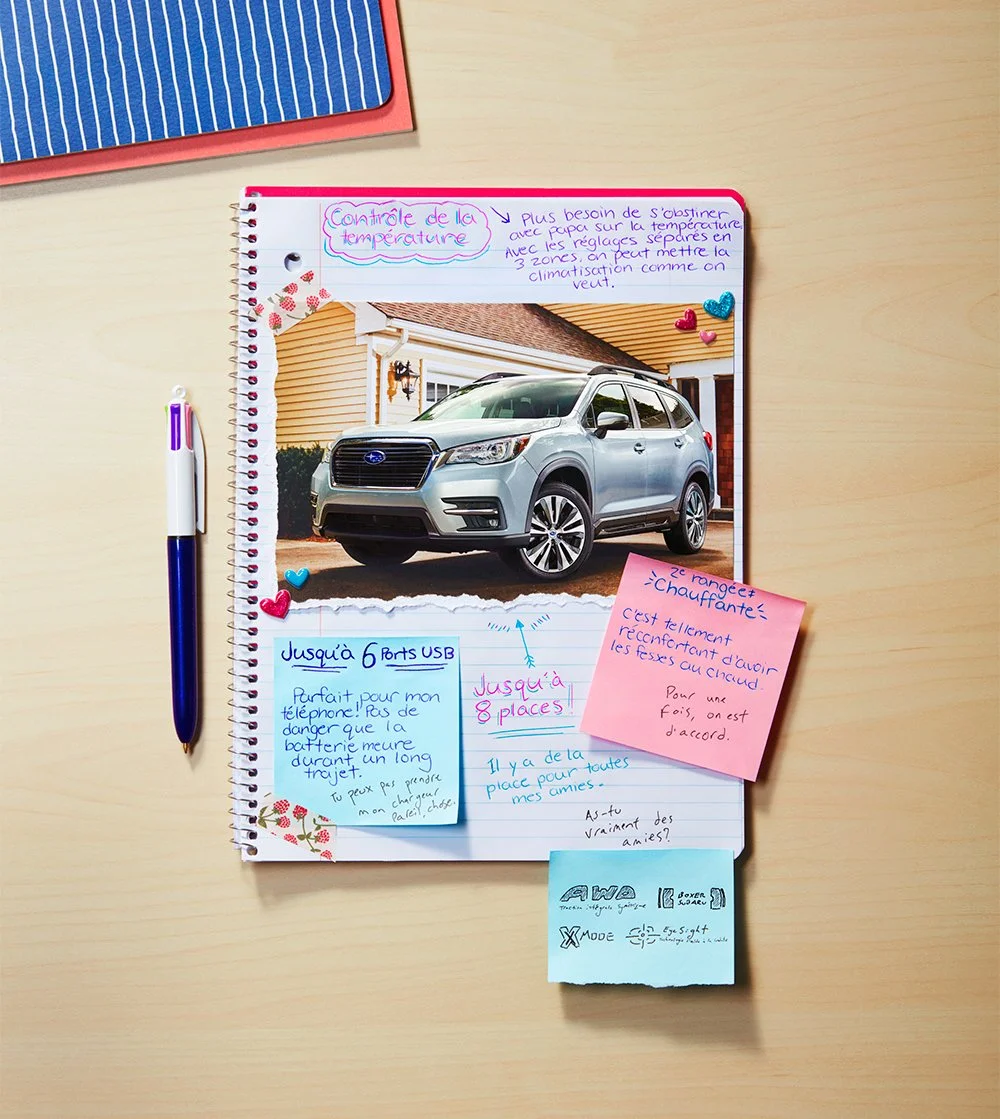 Contrôle de la
température
Plus besoin de s'obstiner
avec papa sur la température.
Avec les réglages séparés en
3 zones, on peut mettre la
climatisation comme on
veut.
2e rangée
chauffante
C'est tellement
réconfortant d'avoir
les fesses au chaud.
Pour une
fois, on est
d'accord.
Jusqu'à 6 Ports USB
Parfait pour mon
téléphone! Pas de
danger que la
batterie meure
durant un long
trajet.
Tu peux pas prendre
mon chargeur
pareil, chose.
Jusqu'à
8 places!
Il y a de la
place pour toutes
mes amies.
As-tu
vraiment des
amies?
AWD
Traction intégrale symétrique
BOXER
SUBARU
X MODE
EyeSight
Technologie d'aide à la conduite